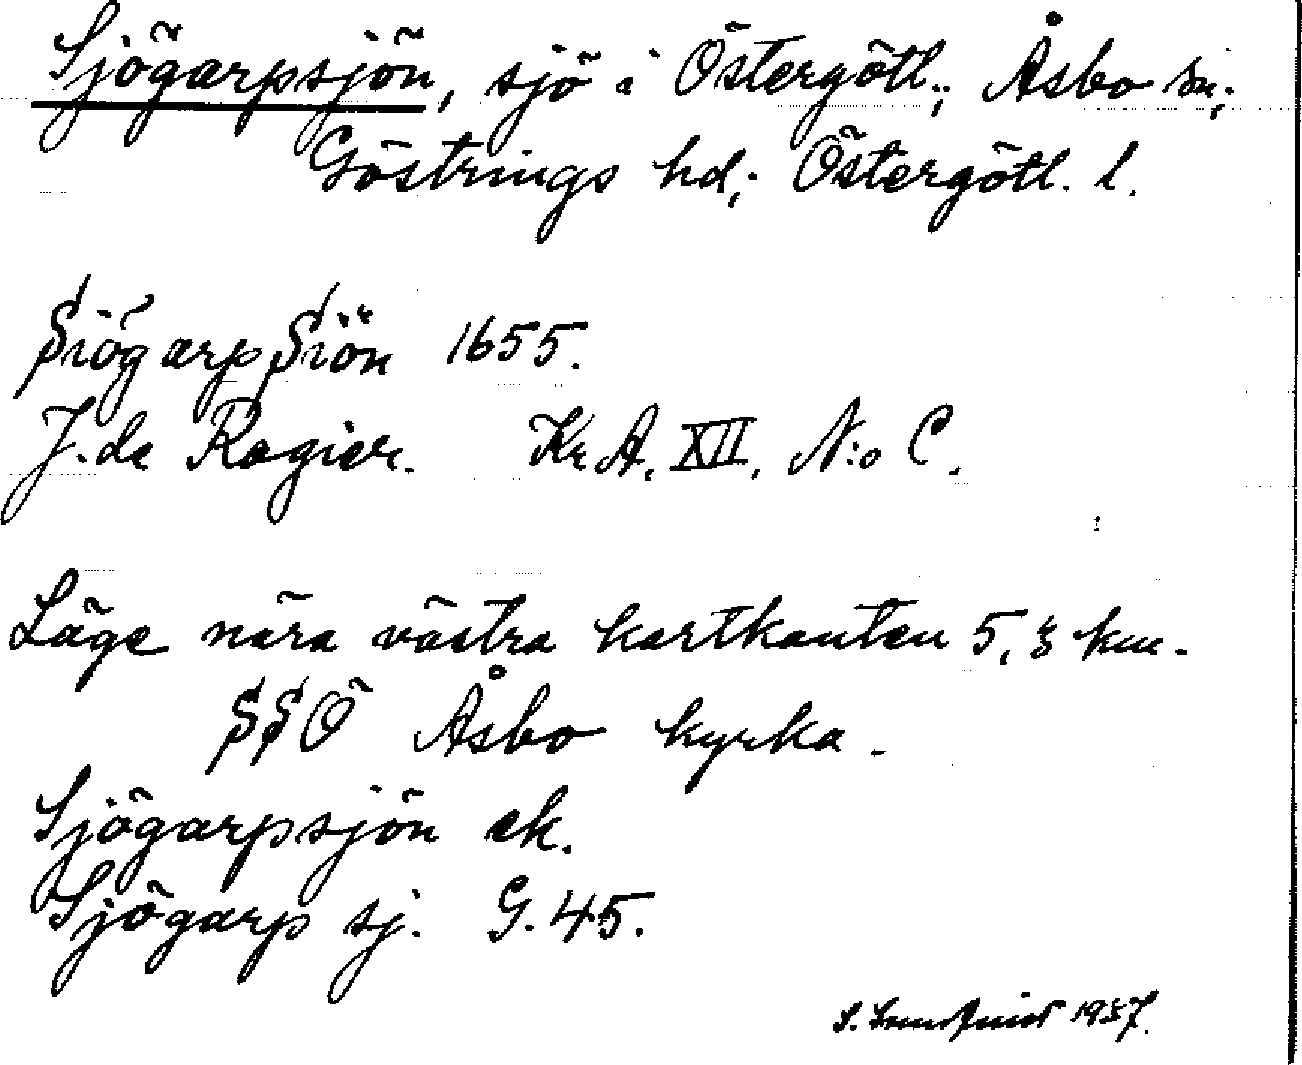 Sjögarpsjön, sjö i Östergötl.; Åsbo sn;
Göstrings hd; Östergötl. l.
Siögarp Siön 1655.
J. de Rogier. Kr.A. XII, N:o C.
Läge nära västra kartkanten 5,3 km.
SSÖ Åsbo kyrka.
Sjögarpsjön ek.
Sjögarp sj. G. 45.
S. 1937.